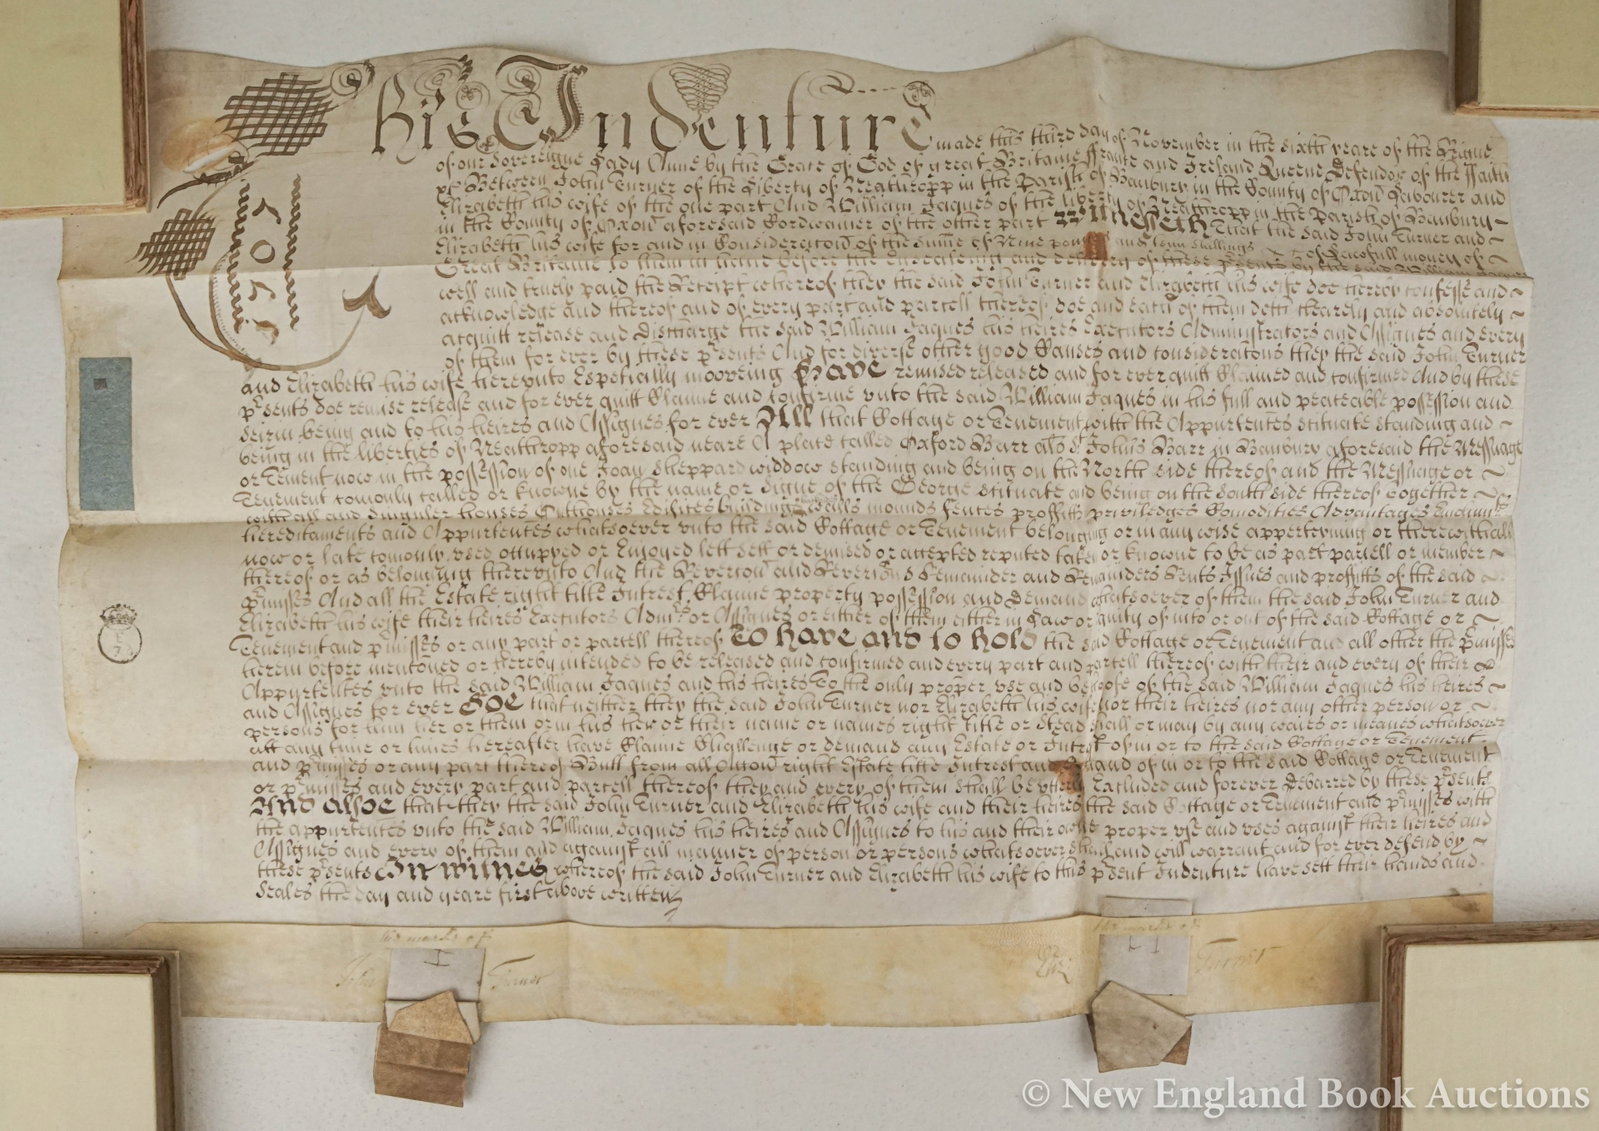 This Indenture made this third day of November in the sixth yeare of the Reigne
of our Sovereigne Lady Anne by the Grace of God of great Britaine France and Ireland Queene Defendor of the Faith
&c Between John Turner of the Liberty of Neathropp in the Parish of Banbury in the County of Oxon Labourer and
Elizabeth his wife of the one part And William Jaques of the liberty of Neathropp in the Parish of Banbury
in the County of Oxon aforesaid Cordwainer of the other part Witnesseth That the said John Turner and
Elizabeth his wife for and in Consideracon of the summe of Nine pounds and tenn shillings of lawfull money of
Great Britaine to them in hand before the Ensealeing and delivery of these pr'sents by the said William Jaques
well and truely paid the Receipt whereof they the said John Turner and Elizabeth his wife doe hereby confesse and
acknowledge and thereof and of every part and parcell thereof doe and each of them doth clearly and absolutely
acquitt release and discharge the said William Jaques his heires Executors Administrators and Assignes and every
of them for ever by these pr'sents And for diverse other good Causes and consideracons they the said John Turner
and Elizabeth his wife hereunto Especially mooveing Have remised released and for ever quitt Claimed and confirmed And by these
pr'sents doe remise release and for ever quitt Claime and confirme unto the said William Jaques in his full and peaceable possession and
seizin being and to his heires and Assignes for ever All that Cottage or Tenement with the Appurten'es scituate standing and
being in the liberties of Neathropp aforesaid neare A place called Oxford Barr als St Johns Barr in Banbury aforesaid the Messuage
or Tenement now in the possession of one Joan Sheppard widdow standing and being on the North side thereof and the Messuage or
Tenement comonly called or knowne by the name or Signe of the George scituate and being on the south side thereof Together
with all and singuler houses Outhouses Edifices buildings walls mounds fences proffitts priviledges Comodities Advantages
hereditaments and Appurten'es whatsoever unto the said Cottage or Tenement belonging or in any wise apperteyning or therewithall
now or late comonly used occupyed or Enjoyed lett sett or demised or accepted reputed taken or knowne to be as part parcell or member
thereof or as belonging thereunto And the Revercon and Revercons Remainder and Remainders Rents Issues and proffitts of the said
pr'misses And all the Estate right title Intrest Claime property possession and demand whatsoever of them the said John Turner and
Elizabeth his wife their heires Executors Admin'rs or Assignes or either of them either in Law or Equity of into or out of the said Cottage or
Tenement and pr'misses or any part or parcell thereof To have and to hold the said Cottage or Tenement and all other the pr'misses
herein before mentoned or hereby intended to be released and confirmed and every part and parcell thereof with their and every of their
Appurten'es unto the said William Jaques and his heires To the only proper use and behoofe of the said William Jaques his heires
and Assignes for ever Soe that neither they the said John Turner nor Elizabeth his wife nor their heires nor any other person or
persons for him her or them or in his her or their name or names right title or stead shall or may by any waies or meanes whatsoever
att any time or times hereafter have Claime Challenge or demand any Estate or Intrest of in or to the said Cottage or Tenement
and pr'misses or any part thereof But from all Accon right Estate title Intrest and demand of in or to the said Cottage or Tenement
or pr'misses and every part and parcell thereof they and every of them shall be utterly Excluded and forever Debarred by these pr'sents
And alsoe that they the said John Turner and Elizabeth his wife and their heires the said Cottage or Tenement and pr'misses with
the appurten'es unto the said William Jaques his heires and Assignes to his and their owne proper use and uses against their heires and
Assignes and every of them and against all manner of person or persons whatsoever shall and will warrant and for ever defend by
these pr'sents In witnes whereof the said John Turner and Elizabeth his wife to this pr'sent Indenture have sett their hands and
Seales the day and yeare first above written
the marke of
John I Turner
the marke of
Eliz Turner
© New England Book Auctions